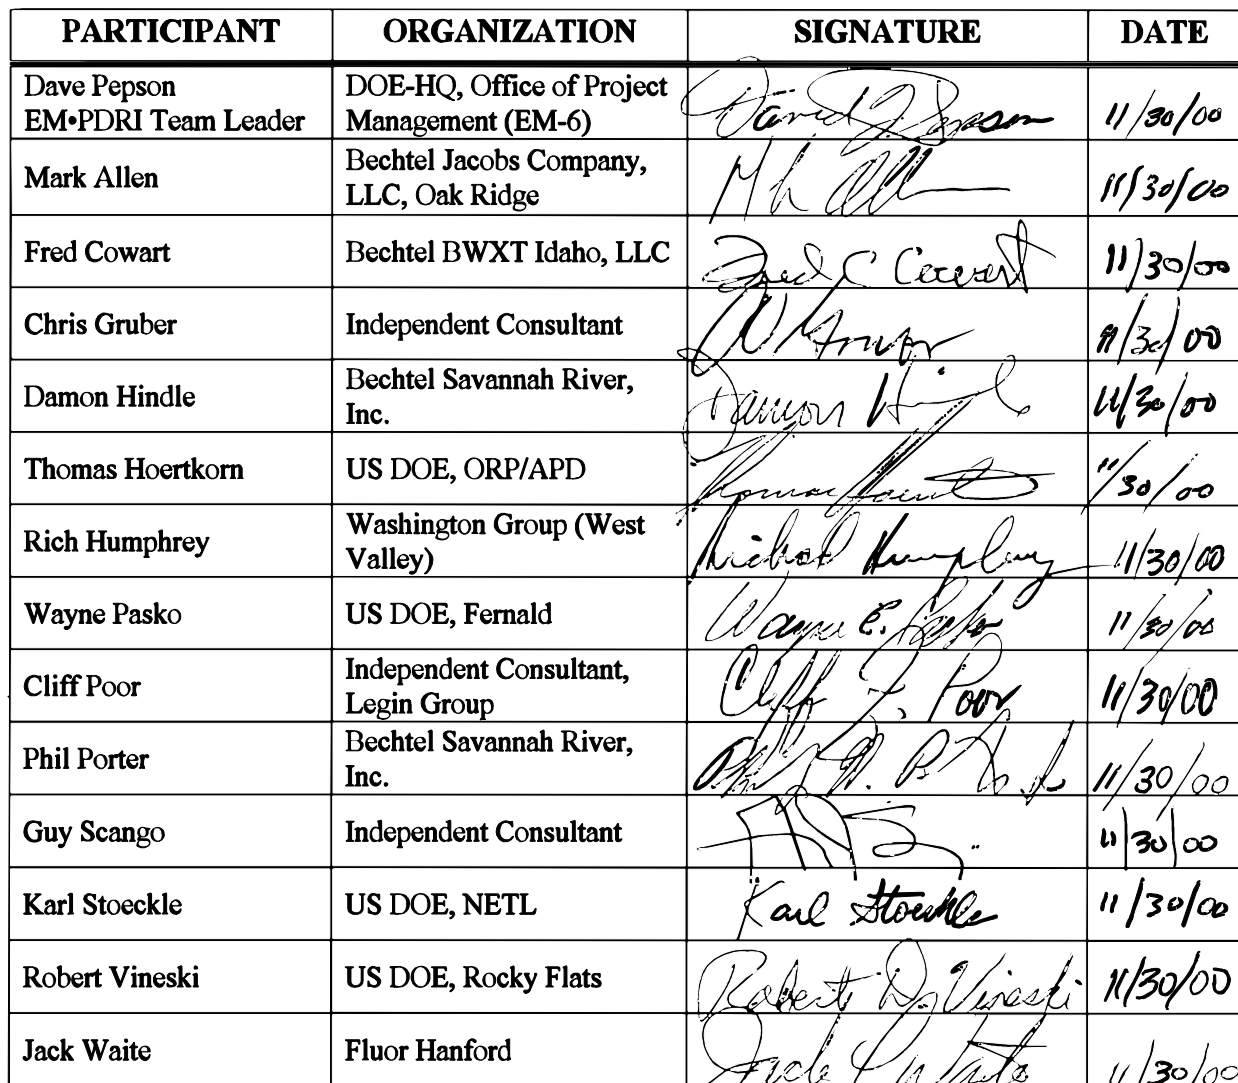 PARTICIPANT ORGANIZATION SIGNATURE DATE
Dave Pepson DOE-HQ, Office of Project
EM•PDRI Team Leader Management (EM-6) David J Pepson 11/30/00
Mark Allen Bechtel Jacobs Company,
LLC, Oak Ridge 11/30/00
Fred Cowart Bechtel BWXT Idaho, LLC Fred C Cowart 11/30/00
Chris Gruber Independent Consultant 11/30/00
Damon Hindle Bechtel Savannah River,
Inc. Damon 11/30/00
Thomas Hoertkorn US DOE, ORP/APD Thomas 11/30/00
Rich Humphrey Washington Group (West
Valley) Richard Humphrey 11/30/00
Wayne Pasko US DOE, Fernald Wayne E. Pasko 11/30/00
Cliff Poor Independent Consultant,
Legin Group Cliff F. Poor 11/30/00
Phil Porter Bechtel Savannah River,
Inc. 11/30/00
Guy Scango Independent Consultant 11/30/00
Karl Stoeckle US DOE, NETL Karl Stoeckle 11/30/00
Robert Vineski US DOE, Rocky Flats Robert D. Vineski 11/30/00
Jack Waite Fluor Hanford Jack Waite 11/30/00